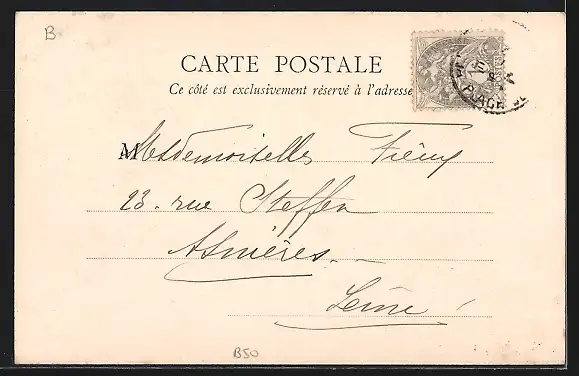 B
CARTE POSTALE
Ce côté est exclusivement réservé à l'adresse
Mesdemoiselles
23. rue Steffen
Asnières.
Seine
B50